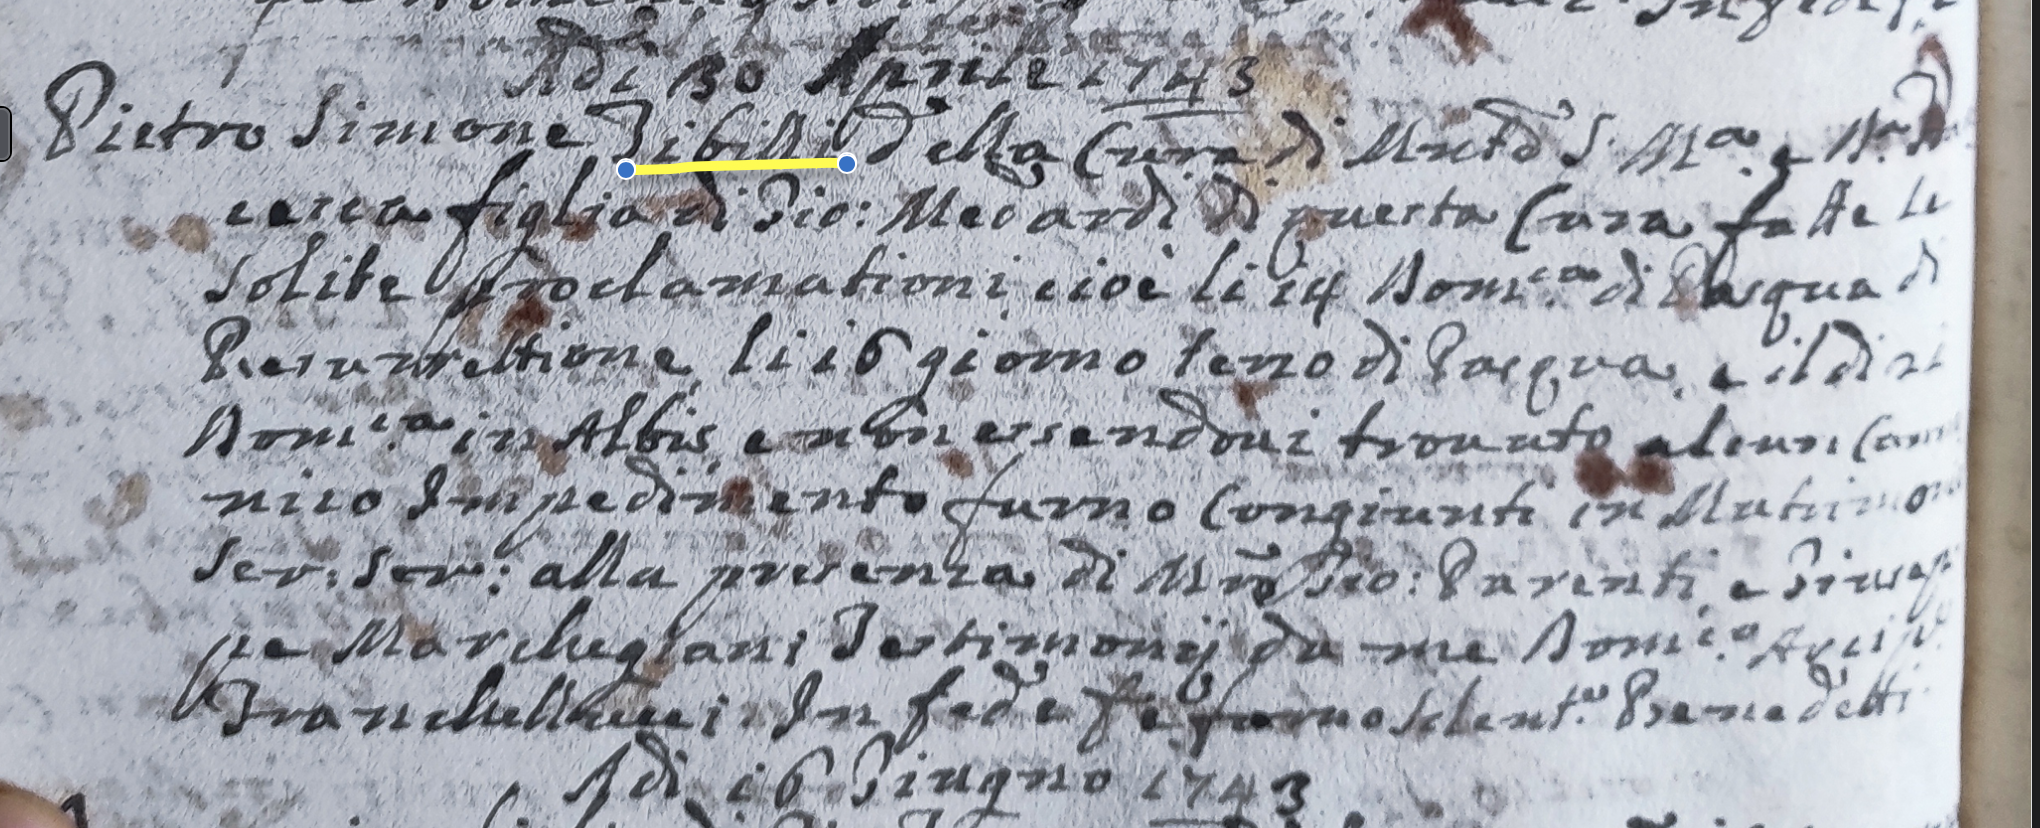 Adi 30 Aprile 1743
Pietro Simone Tibilli della Cura di S. M.a e
figlia di Gio: Medardi di questa Cura fatte le
solite proclamationi cioè li 14 Dom.ca di Pasqua di
Resurrettione li 16 giorno terzo di Pasqua, e il di 21
Dom.ca in Albis, e non essendoui trouato alcun Cano
nico Impedimento furno Congiunti in Matrimon
Ser: Ser: alla presenza di Gio: Parenti, e Giusep
pe Marchegiani Testimonij da me Dom.co Arcip.
In fede furno solent.te Benedetti
Adi 16 Giugno 1743